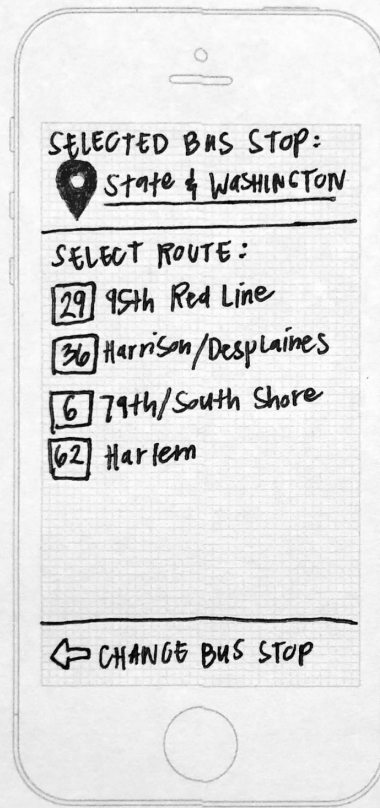 SELECTED BUS STOP:
State & WASHINGTON
SELECT ROUTE:
29 95th Red Line
36 Harrison/Desplaines
6 79th/South Shore
62 Harlem
CHANGE BUS STOP